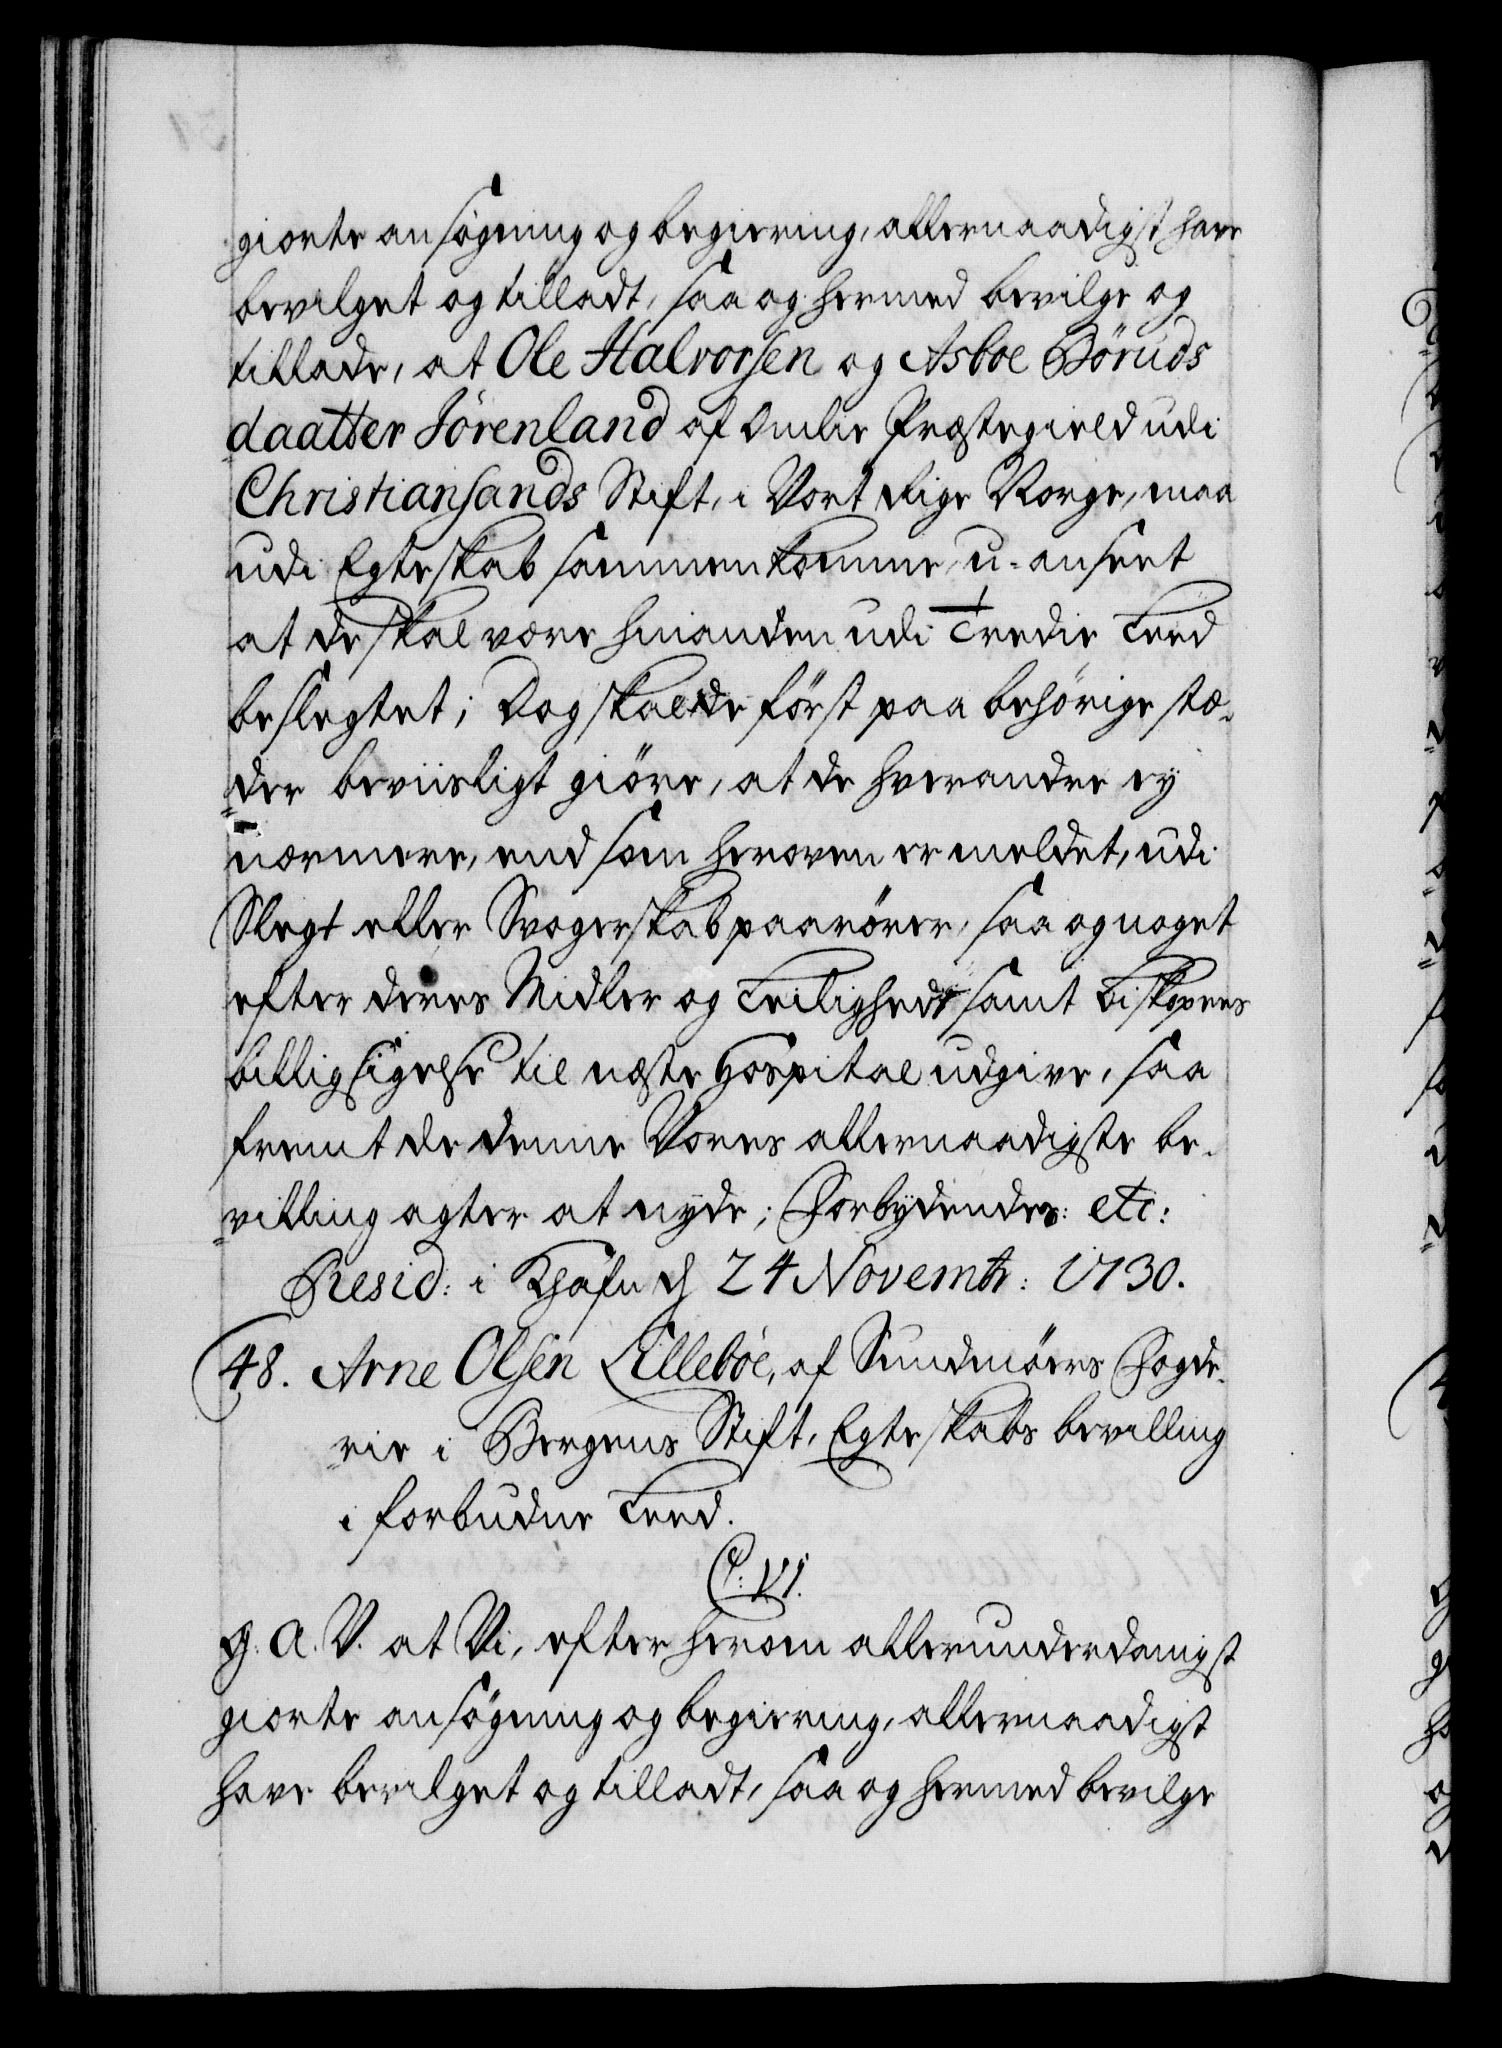 giorte ansögning og begiering, allernaadigst have
bevilget og tilladt, saa og hermed bevilge og
tillade, at Ole Halvorsen og Asboe Böruds
daatter Jörenland af Omlie Præstegield udi
Christiansands Stift, i Vort Rige Norge, maa
udi Egteskab sammenkomme, u-anseet
at de skal være hinanden udi Tredie Leed
beslegtet; Dog skal de först paa behörige stæ-
der beviisligt giöre, at de hverandre ey
nærmere, end som heroven er meldet, udi
Slegt eller Svogerskab paarörer, saa og noget
efter deres Midler og Leilighed samt Biskopens
billigsigelse til næste Hospital udgive, saa
fremt de denne Vores allernaadigste be-
villing agter at nyde; Forbydendes: etc:
Resid: i Khafn d 24 Novembr: 1730.
48. Arne Olsen Lilleböe, af Sundmöers Fogde-
rie i Bergens Stift, Egteskabs bevilling
i forbudne Leed.
C: VI.
G. A. V. at Vi, efter herom allerunderdanigst
giorte ansögning og begiering, allernaadigst
have bevilget og tilladt, saa og hermed bevilge